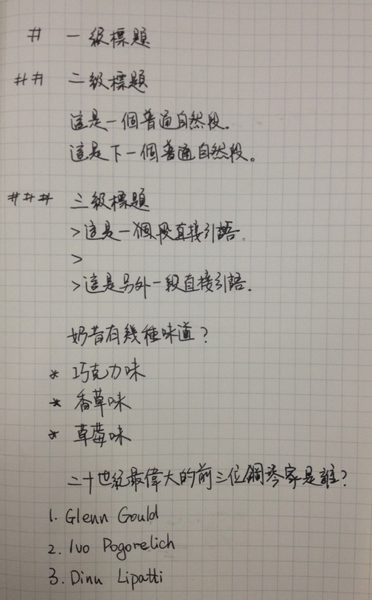 # 一級標題
## 二級標題
這是一個普通自然段.
這是下一個普通自然段。
### 三級標題
>這是一個段直接引語.
>
>這是另外一段直接引語.
奶昔有幾種味道?
* 巧克力味
* 香草味
* 草莓味
二十世紀最偉大的前三位鋼琴家是誰?
1. Glenn Gould
2. Ivo Pogorelich
3. Dinu Lipatti